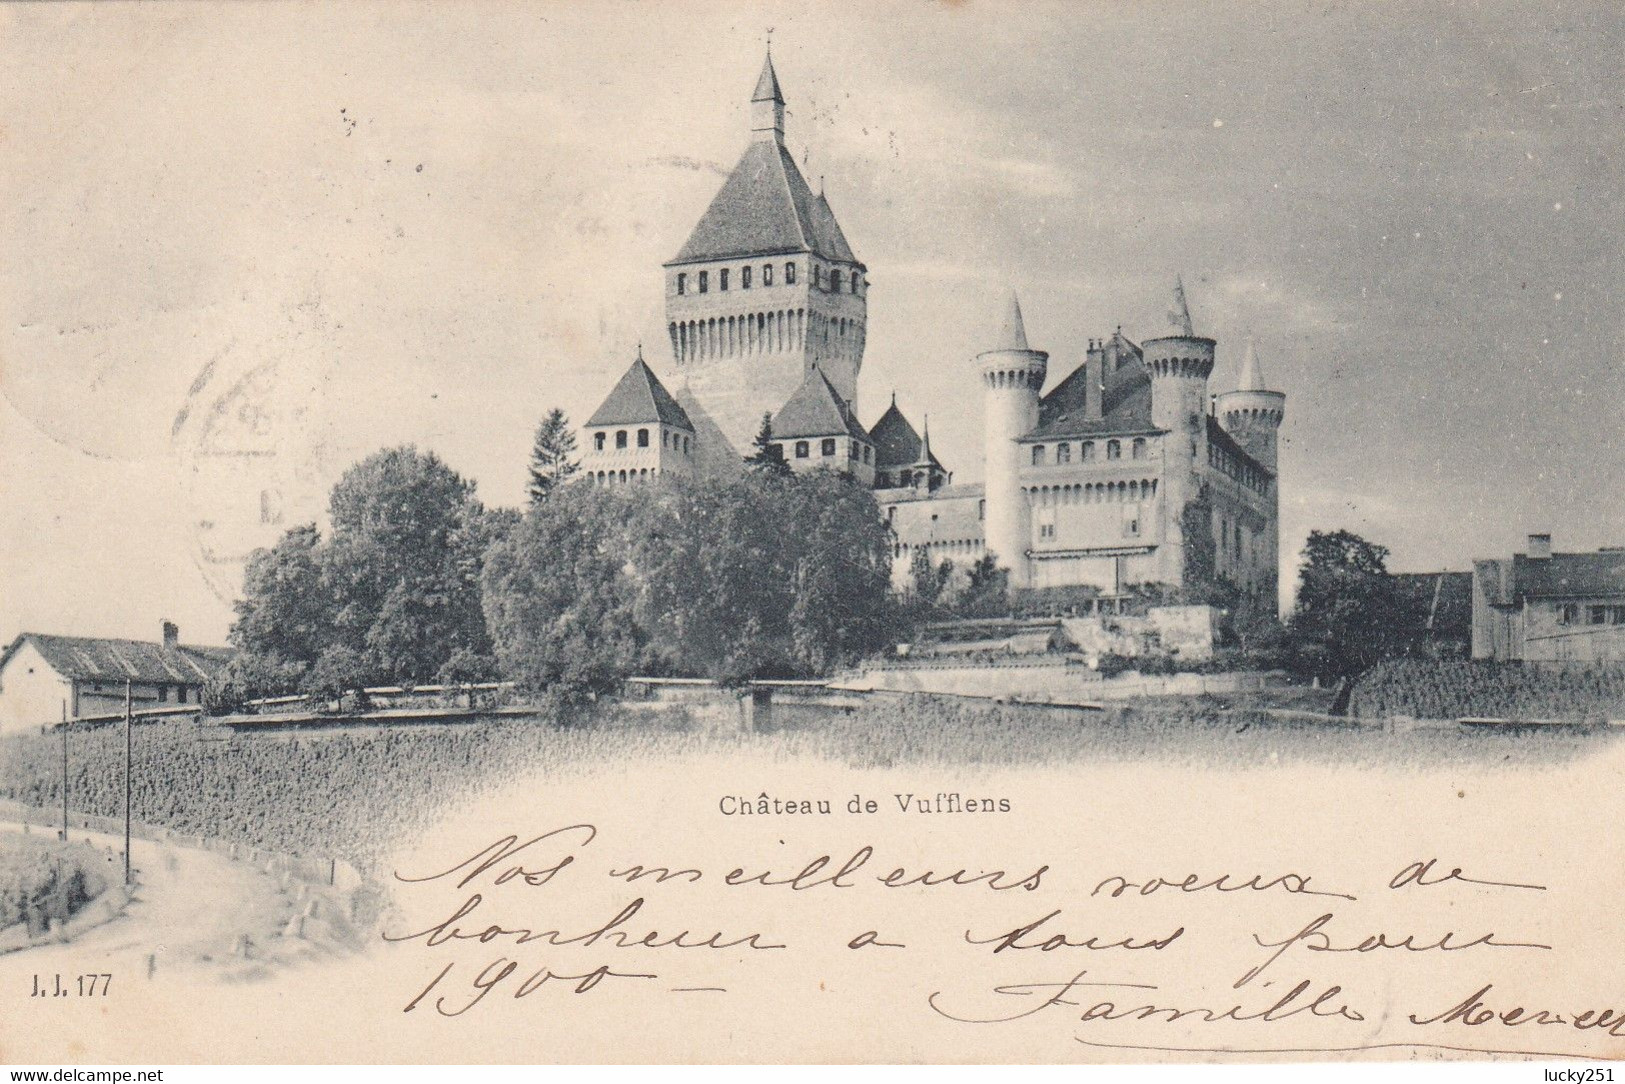 Château de Vufflens
Nos meilleurs voeux de
bonheur a tous pour
1900 –
Famille
J.J. 177
www.delcampe.net
lucky251